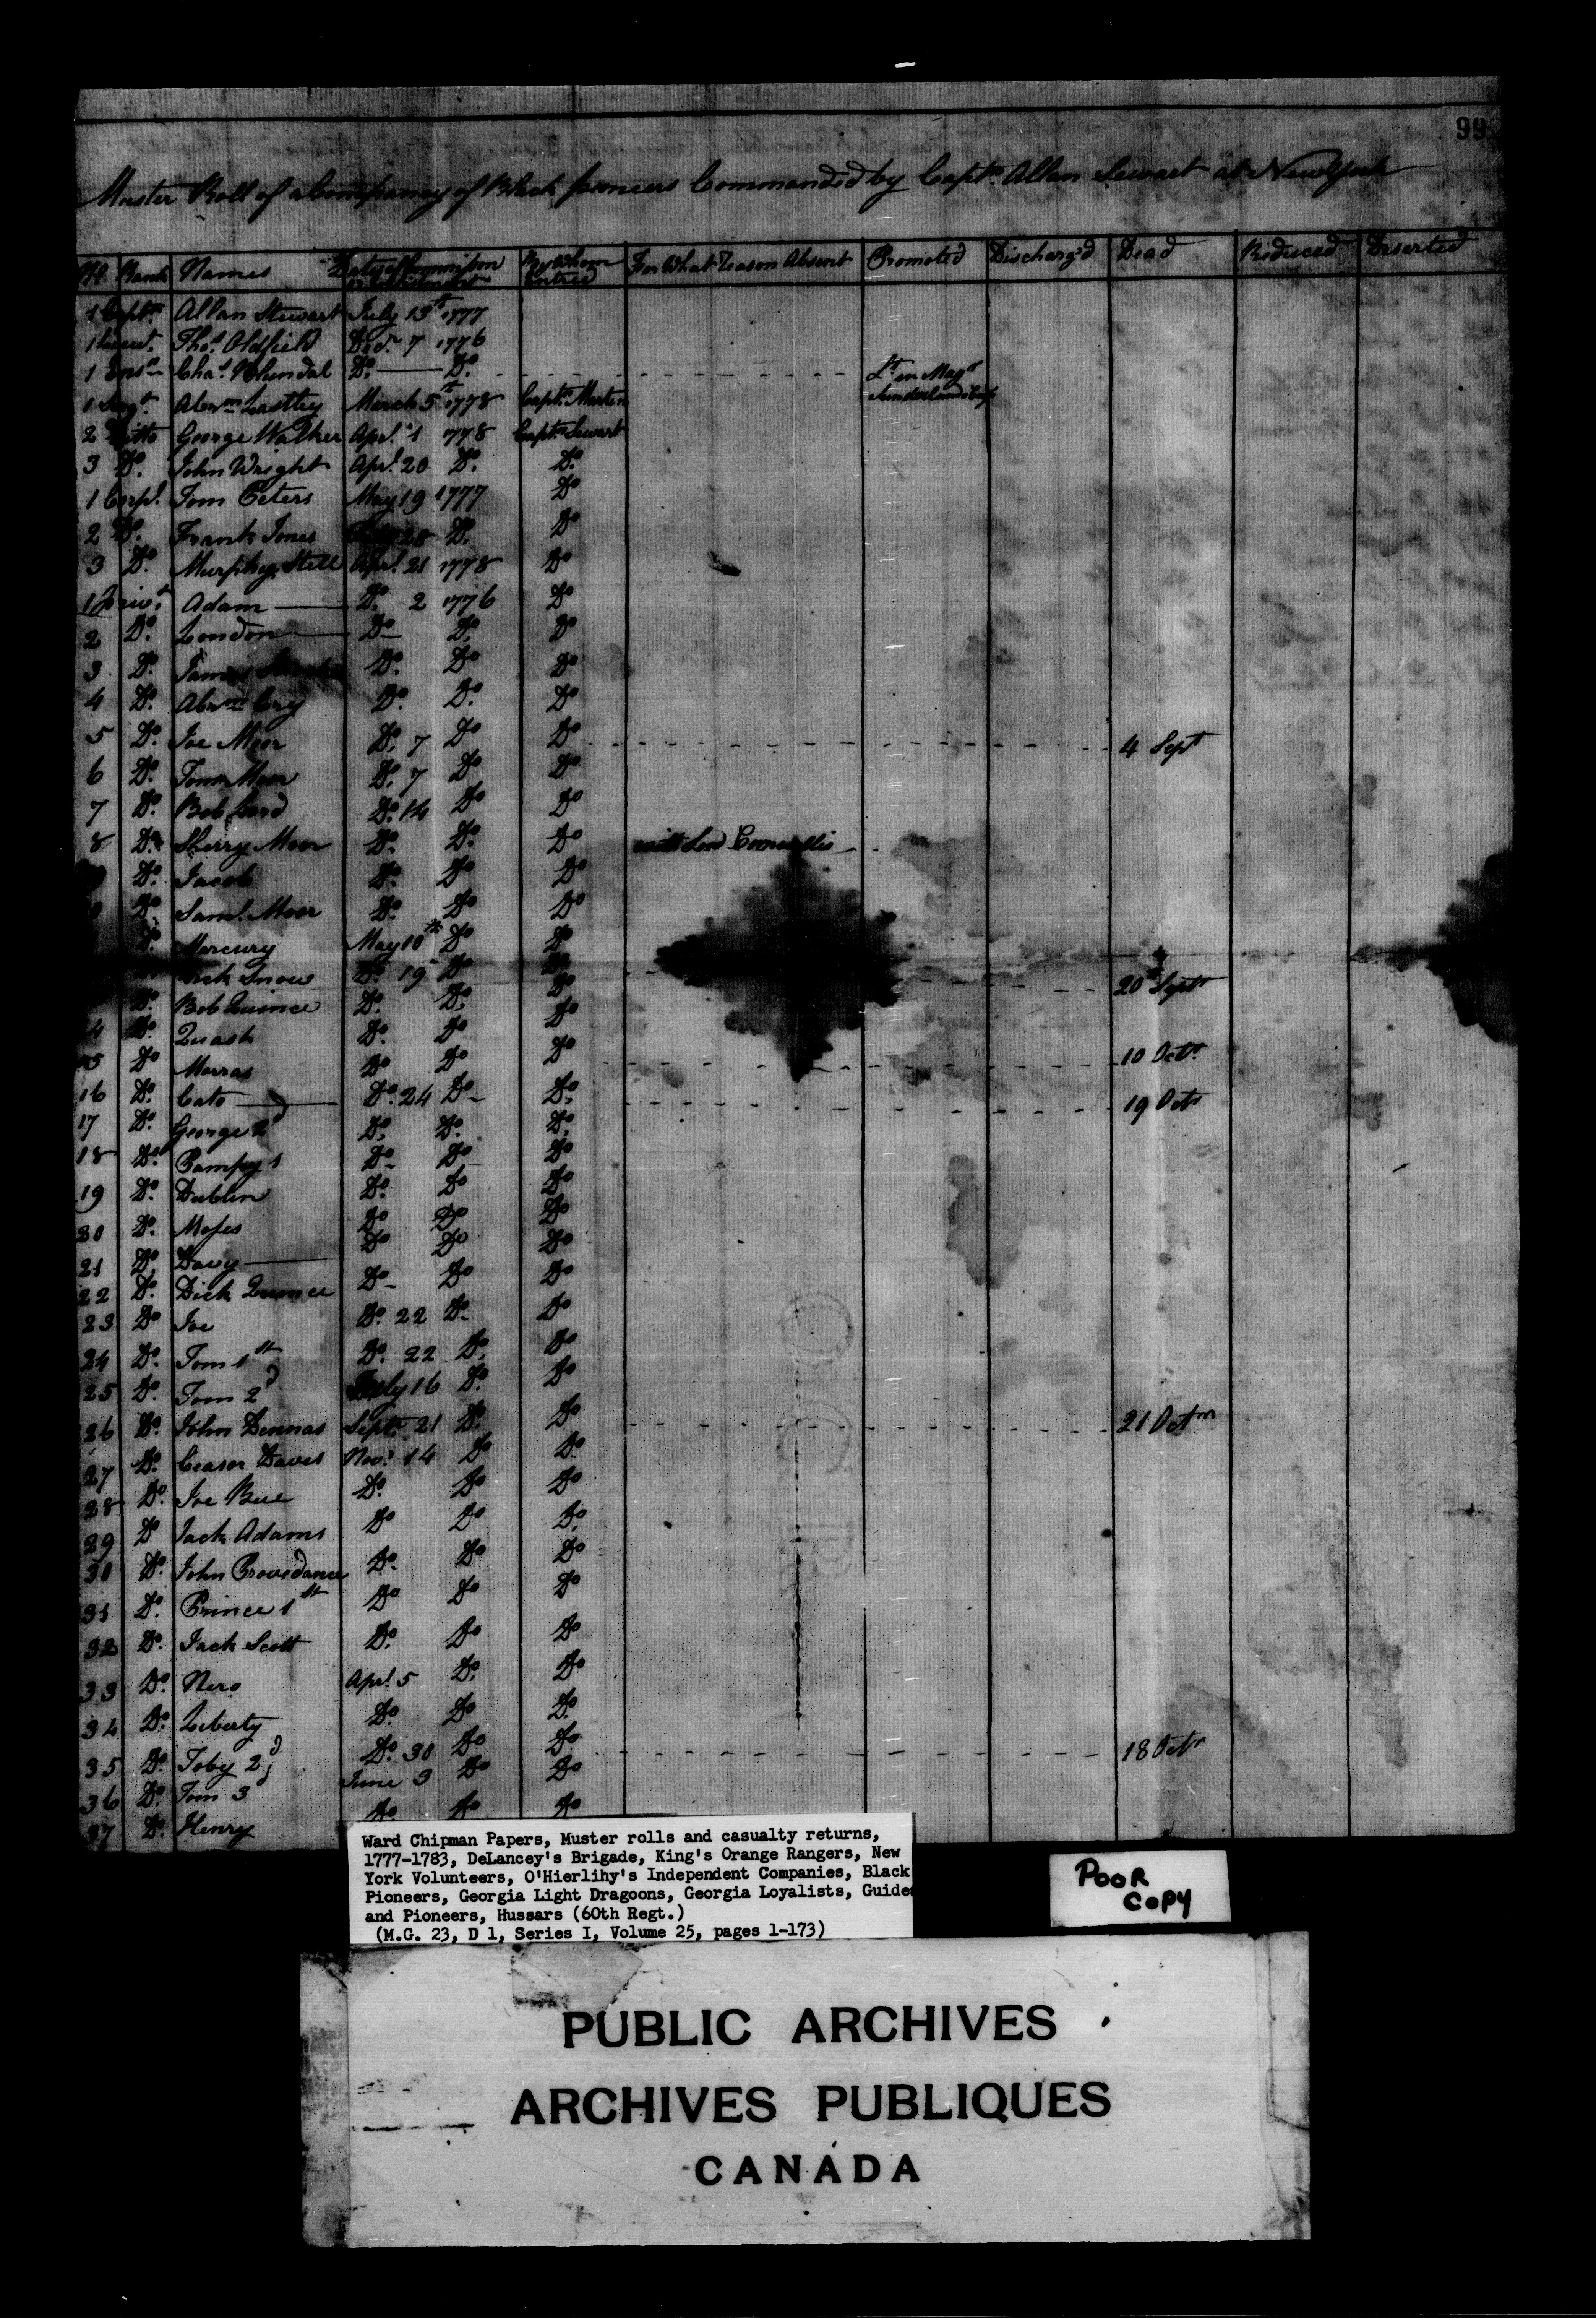 99
Muster Roll of a Company of Black pioneers Commanded by Captn. Allan Stewart at New York
No Rank Names Date of Commission or Enlistment By Whom Entred For What Reason Absent Promoted Discharg'd Dead Reduced Deserted
1 Captn. Allan Stewart July 13th 1777
1 Lieut. Thos. Oldfield Decr. 7 1776
1 Ensn Chas. Do. Do. Lt. in Majr Sunderlands
1 Sergt. Abrm March 5th 1778 Captn. Martin
2 Ditto George Walker Aprl. 1 1778 Captn Stewart
3 Do. John Wright Aprl. 20 Do. Do.
1 Corpl. Tom Peters May 19 1777 Do
2 Do. Frank Jones 28 Do. Do
3 Do. Murphey Still Aprl. 21 1778 Do
1 Privt. Adam Do. 2 1776 Do
2 Do. London Do Do. Do
3 Do. James Do. Do Do
4 Do. Abrm Cry Do. Do. Do
5 Do. Joe Moor Do. 7 Do Do 4 Sept
6 Do. Tom Moor Do. 7 Do Do
7 Do. Bob Do. 14 Do Do
8 Do. Sherry Moor Do. Do. Do with Lord Cornwallis
Do. Jacob Do. Do Do
Do Saml. Moor Do. Do Do
Do. Mercury May 10th Do Do
Snow Do. 19 Do Do 20th Septr
Do. Bob Quince Do. Do. Do
4 Do. Quash Do. Do Do
15 Do Morras Do Do Do 10 Octr
16 Do. Cato Do. 24 Do Do. 19 Octr
17 Do. George 2d Do. Do. Do.
18 Do. Pompey 1 Do Do Do
19 Do. Dublin Do. Do Do
20 Do. Moses Do Do Do
21 Do. Davy Do Do Do
22 Do. Dick Quince Do Do Do
23 Do Joe Do. 22 Do. Do
24 Do. Tom 1st Do. 22 Do. Do
25 Do. Tom 2d July 16 Do. Do
26 Do. John Dennas Septr. 21 Do. Do 21 Octr
27 Do. Ceaser Daves Novr. 14 Do Do.
28 Do. Joe Bue Do. Do Do
29 Do Jack Adams Do Do Do.
30 Do. John Provedance Do. Do Do
31 Do. Prince 1st Do Do Do
32 Do. Jack Scott Do. Do Do
33 Do. Nero Aprl. 5 Do. Do
34 Do. Liberty Do. Do Do.
35 Do. Toby 2d Do. 30 Do Do. 18 Octr
36 Do. Tom 3d June 3 Do Do
37 Do. Henry Do. Do Do
Ward Chipman Papers, Muster rolls and casualty returns,
1777-1783, DeLancey's Brigade, King's Orange Rangers, New
York Volunteers, O'Hierlihy's Independent Companies, Black
Pioneers, Georgia Light Dragoons, Georgia Loyalists, Guides
and Pioneers, Hussars (60th Regt.)
(M.G. 23, D 1, Series I, Volume 25, pages 1-173)
POOR
COPY
PUBLIC ARCHIVES
ARCHIVES PUBLIQUES
CANADA